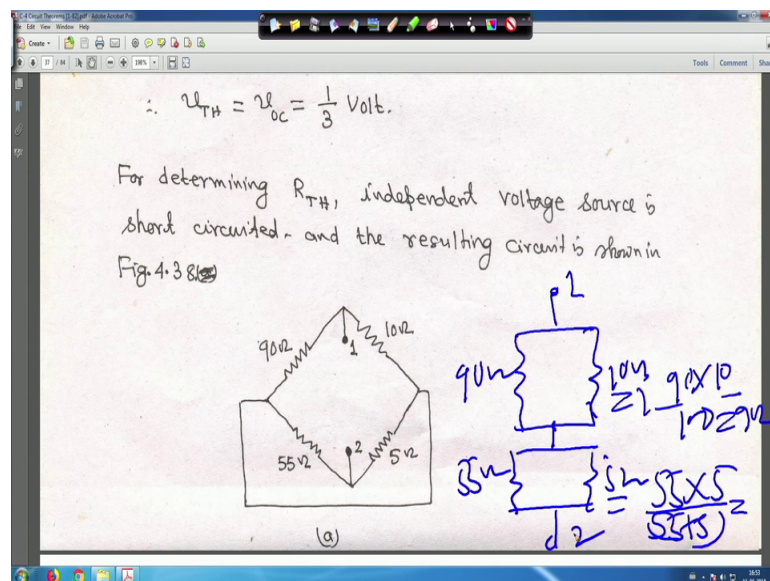 C-4 Circuit Theorems [1-82].pdf - Adobe Acrobat Pro
File Edit View Window Help
Create
37 / 84
198%
Tools Comment
∴ υTH = υOC = 1/3 Volt.
For determining RTH, independent voltage source is
short circuited and the resulting circuit is shown in
Fig. 4.38
90Ω 10Ω
1
2
55Ω 5Ω
(a)
1
90Ω 10Ω = 90×10/100 = 9Ω
55Ω 5Ω = 55×5/(55+5) =
2
16:53